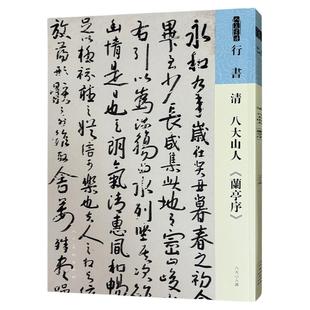 行書
清 八大山人《蘭亭序》
永和九年歲在癸丑暮春之初
畢至少長咸集此地崇山峻
引以為流觴列坐其次
幽情是日也氣清惠風和暢
足以極視聽之娛信可樂也夫人之相
放蕩形骸之外雖舍萬殊靜躁